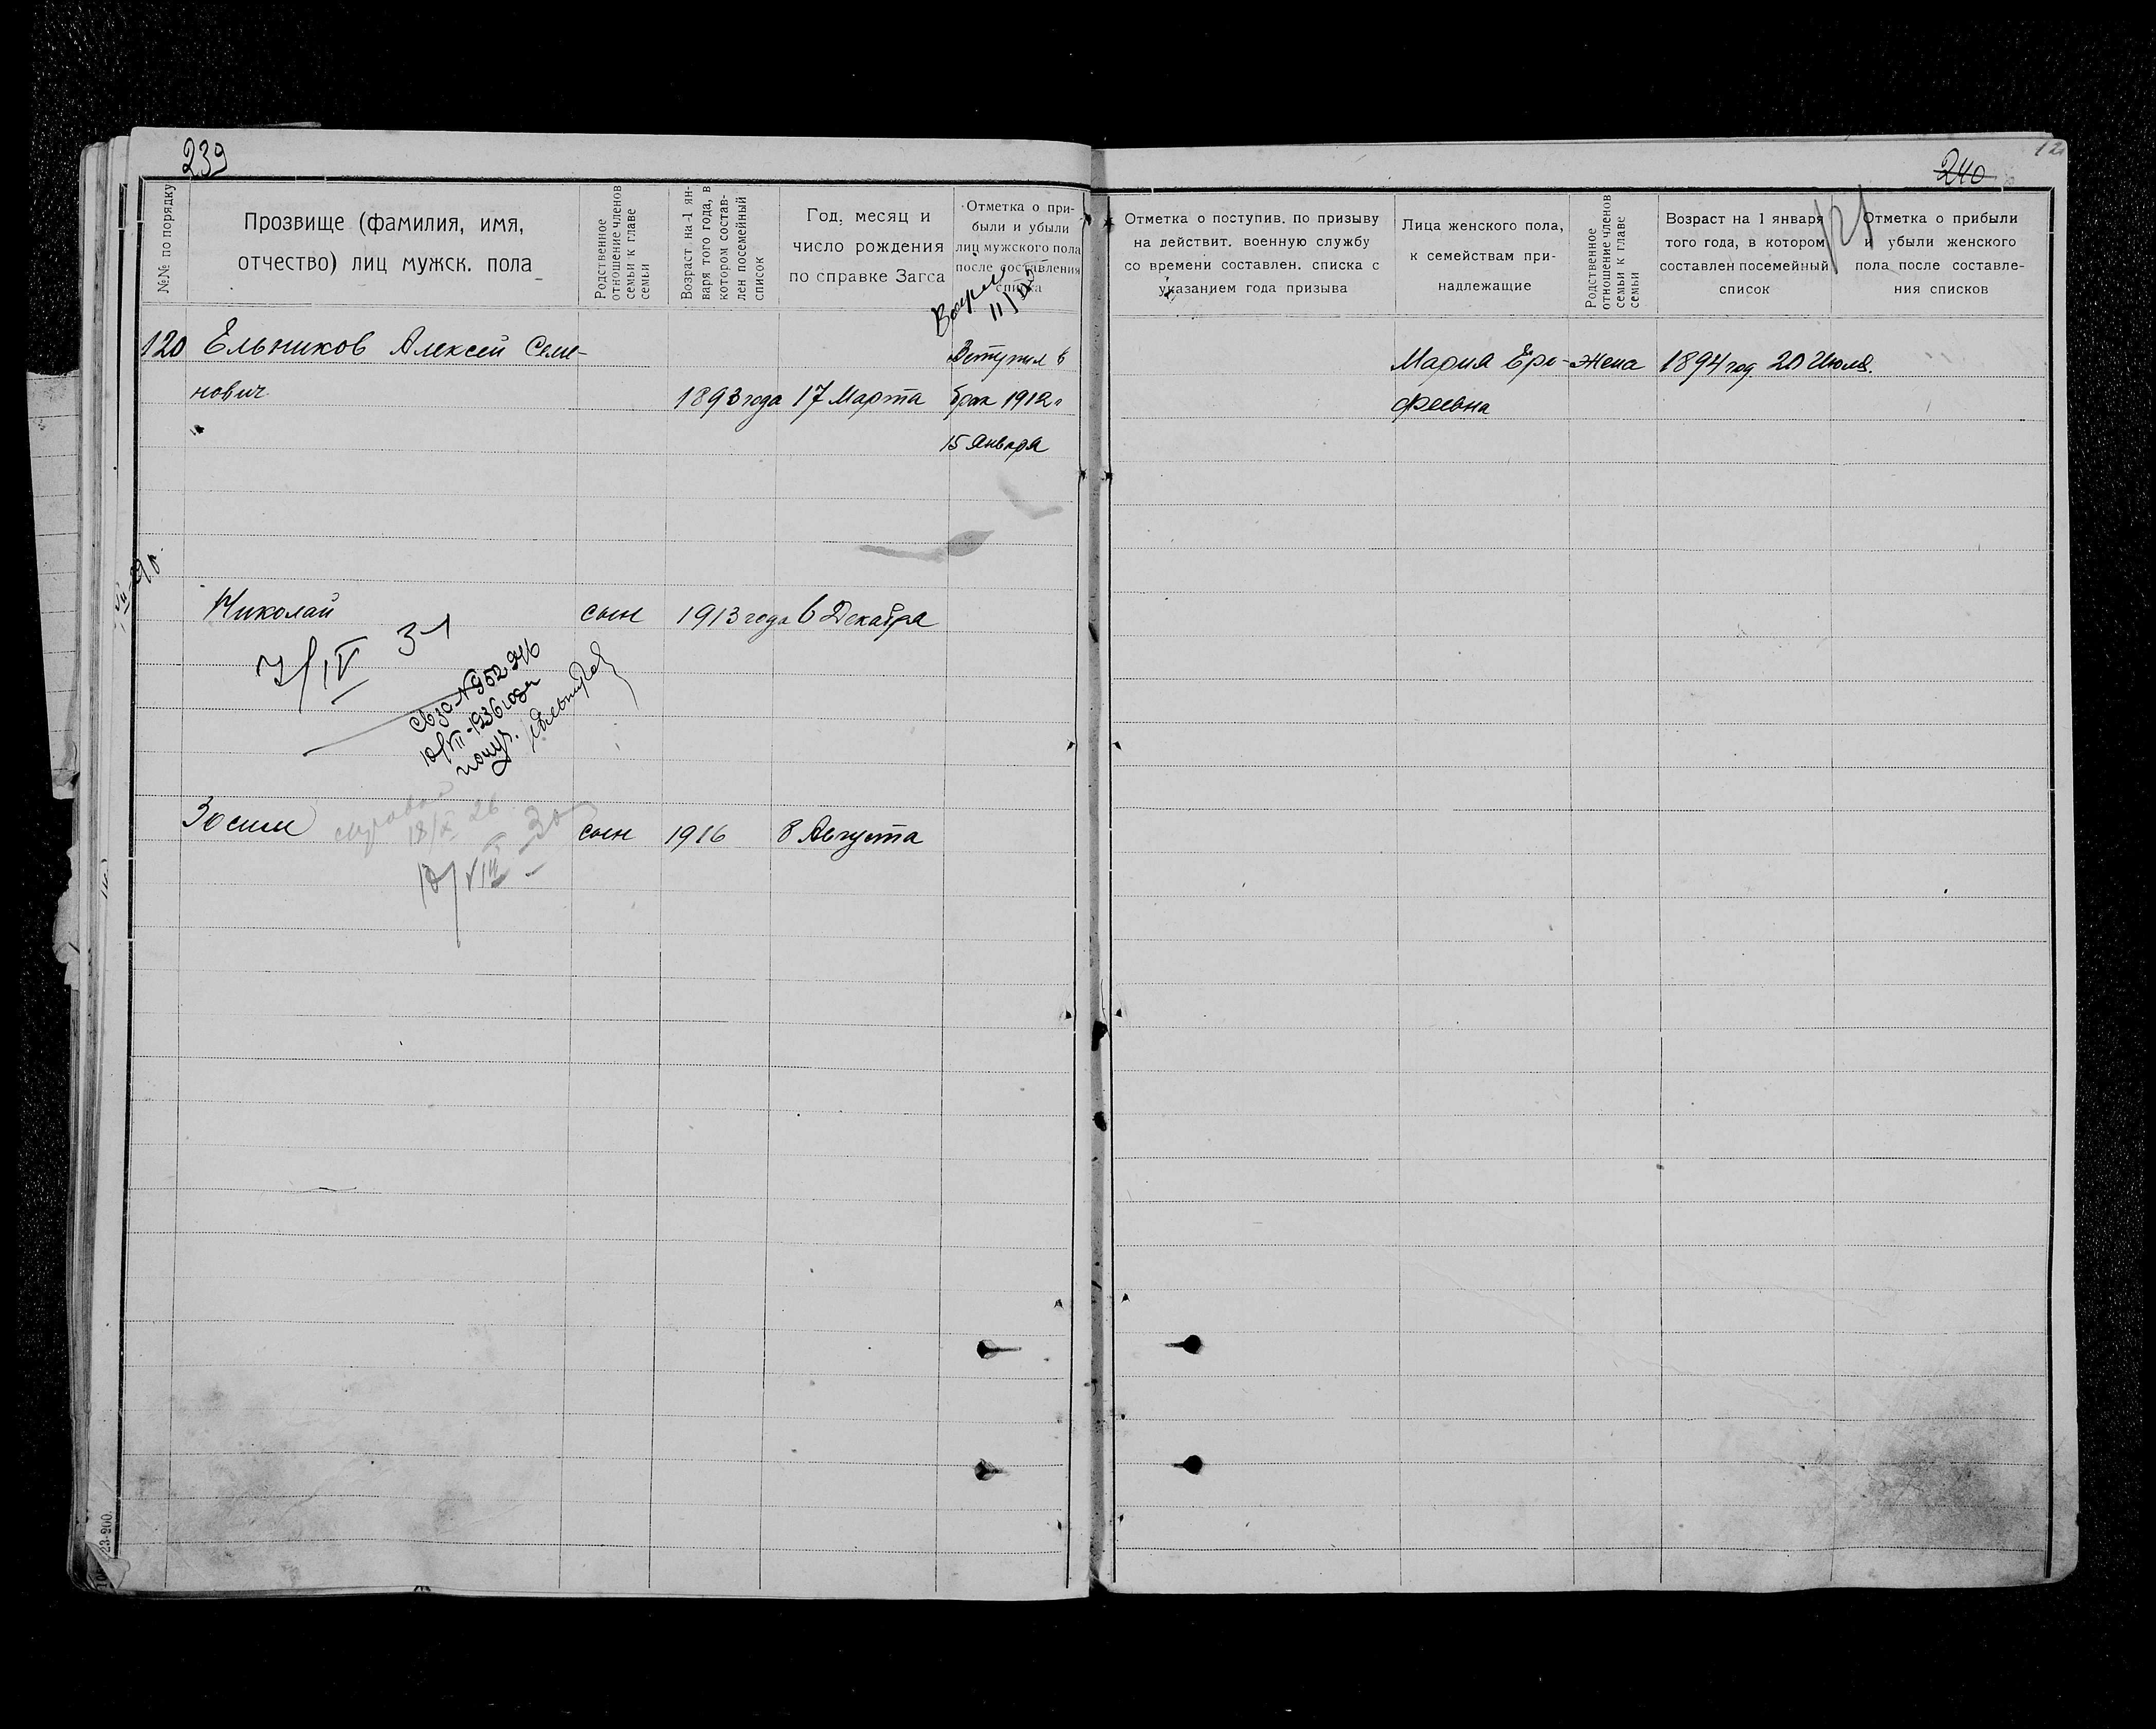 239
№№ по порядку
Прозвище (фамилия, имя,
отчество) лиц мужск. пола
Родственное
отношение членов
семьи к главе
семьи
Возраст на 1 ян-
варя того года, в
котором состав-
лен посемейный
список
Год, месяц и
число рождения
по справке Загса
Отметка о при-
были и убыли
лиц мужского пола
после составления
списка
11/II
120 Ельников Алексей Семе-
нович
1893 года 17 Марта
Вступил в
брак 1912 г
15 Января
Николай сын 1913 года 6 Декабря
7/IV 31
№ 952246
10/VII-1936 года
получ.
Зосим сын 1916 8 Августа
18/X 26
10/VIII 30
23-200.
240
12
121
Отметка о поступив. по призыву
на действит. военную службу
со времени составлен. списка с
указанием года призыва
Лица женского пола,
к семействам при-
надлежащие
Родственное
отношение членов
семьи к главе
семьи
Возраст на 1 января
того года, в котором
составлен посемейный
список
Отметка о прибыли
и убыли женского
пола после составле-
ния списков
Мария Еро- жена 1894 год. 20 Июля.
феевна